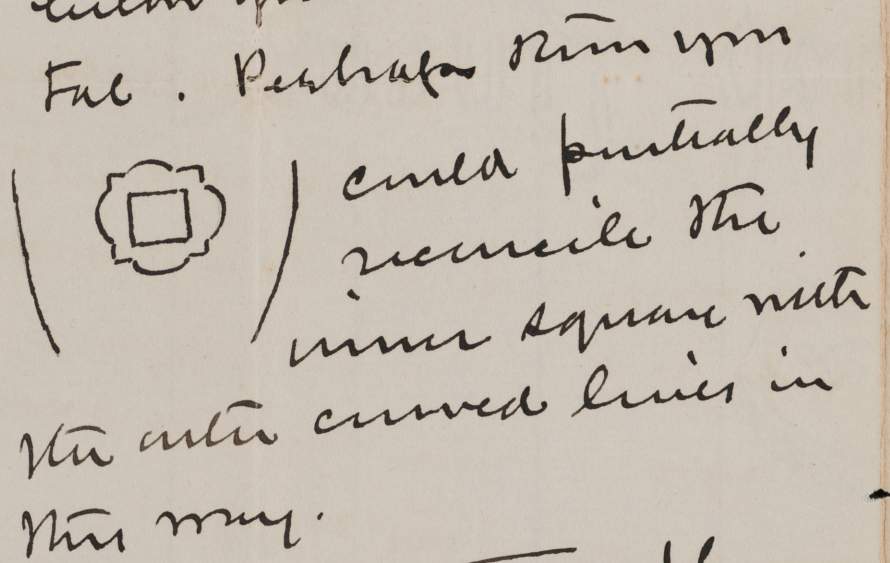 Fal. Perhaps then you
could partially
reconcile the
inner square with
the outer curved lines in
this way.